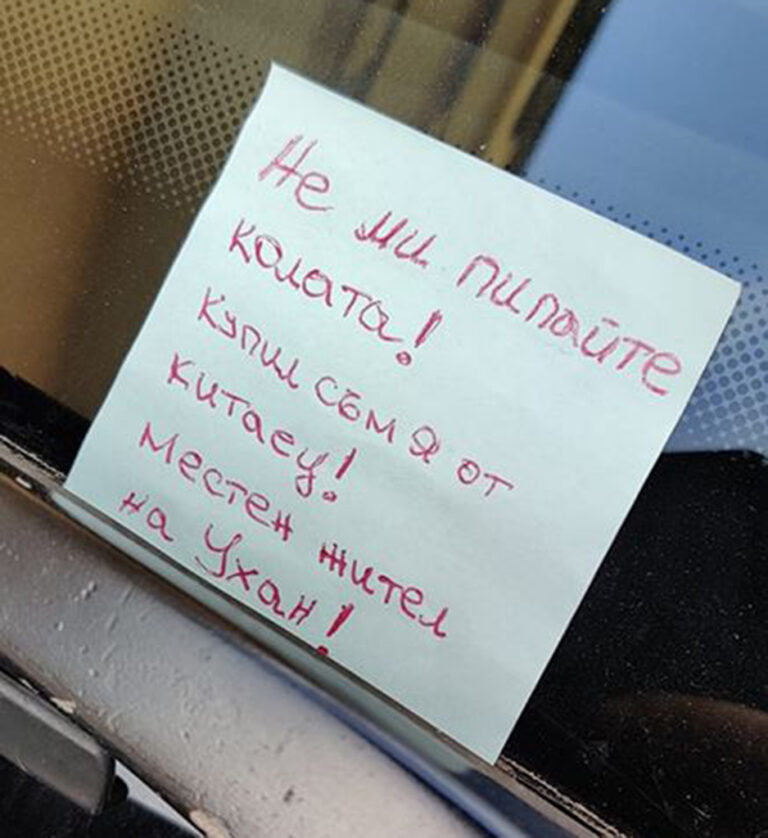 Не ми пипайте
колата!
Купил съм я от
китаец!
Местен жител
на Ухан!